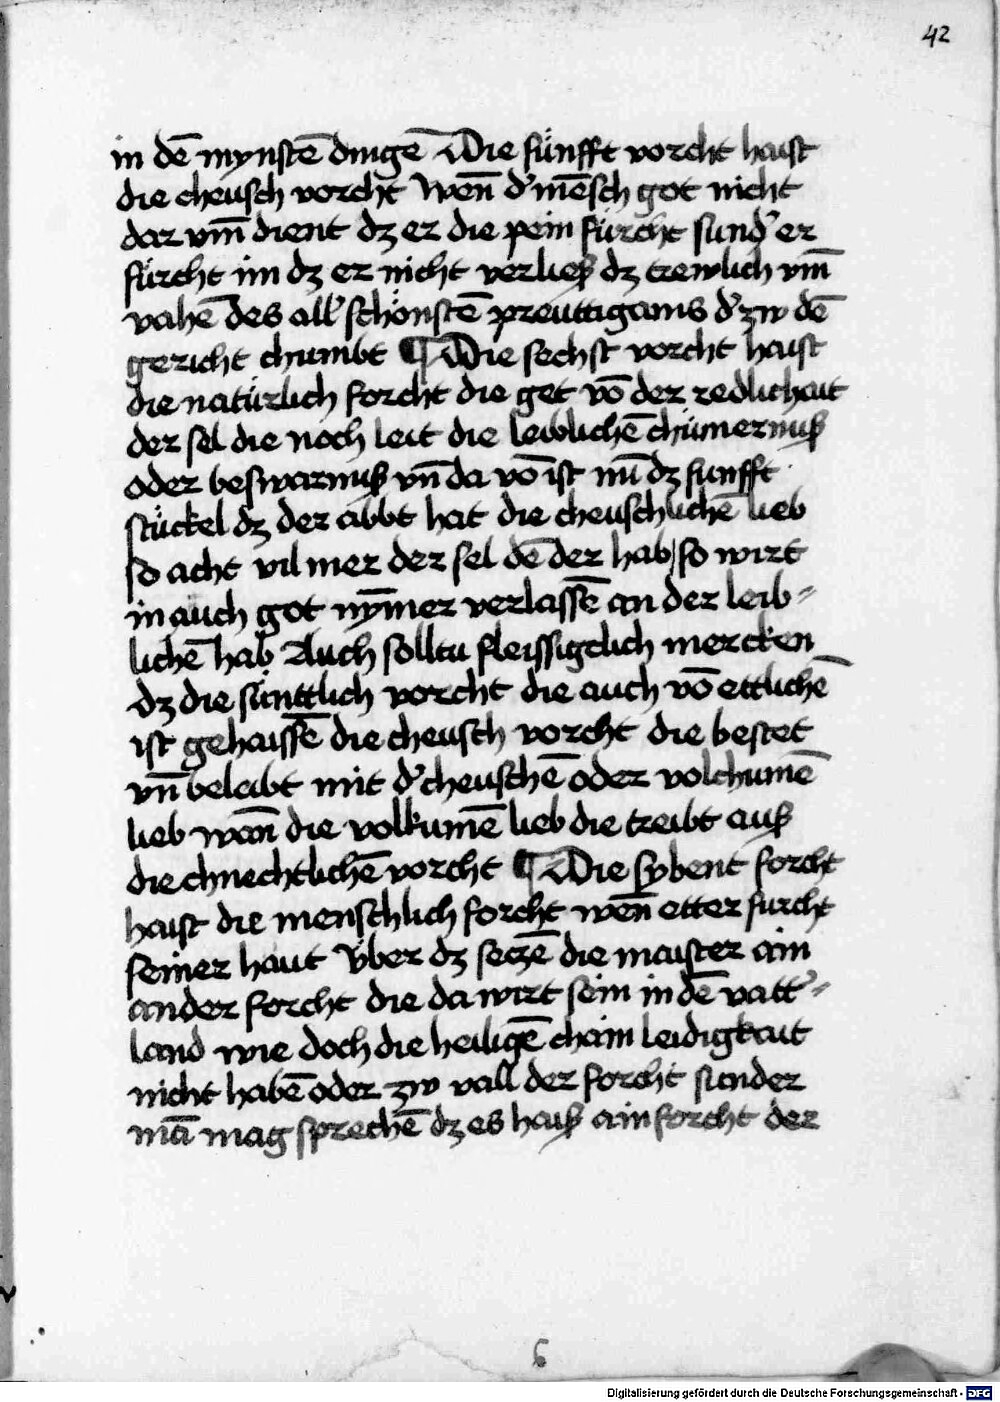 42
in dē mynstē dingē Die fünfft vorcht haist
die cheusch vorcht Wen̄ d' mēsch got nicht
dar vm̄ dient dz er die pein fürcht sund' er
fürcht im dz er nicht verliess dz trewlich vm̄
vahē des all' schönstē prewttigams d' zw dē
gericht chumbt ¶ Die sechst vorcht haist
die natürlich forcht die get vō der redlichait
der sel die noch leit die leiblichē chümernuß
oder beswarnuß vn̄ da vō ist nū dz funfft
stückel dz der abbt hat die cheuschlichē lieb
so acht vil mer der sel dē der hab / so wirt
in auch got nym̄er verlassē an der leib⸗
lichē hab Auch solltu fleissigclich mercken
dz die sünttlich vorcht die auch vō ettlichē
ist gehaissē die cheusch vorcht die bestet
vn̄ beleibt mit d' cheuschē oder volchumē
lieb wan̄ die volkumē lieb die treibt auß
die chnechtlichē vorcht ¶ Die sybent forcht
haist die menschlich forcht wen̄ etter furcht
seiner haut Über dz seczē die maister ain
ander forcht die da wirt sein in dē vatt'⸗
land wie doch die heiligē chain leidigkait
nicht habē oder zw vall der forcht sunder
mā mag sprechē dz es haiß ain forcht der
6
Digitalisierung gefördert durch die Deutsche Forschungsgemeinschaft - DFG